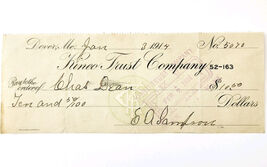 Dover, Me. Jan 8 1914 No. 5070
Kineo Trust Company 52-163
Pay to the order of Chas Dean $10.50
Ten and 50/100 Dollars
E A Sampson